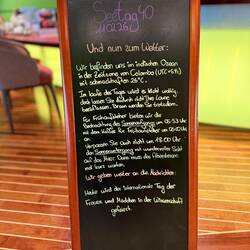 Seetag 40
11.02.26
Und nun zum Wetter:
Wir befinden uns im indischen Ozean
in der Zeitzone von Colombo (UTC+5½)
mit schmeichelhaften 26°C.
Im Laufe des Tages wird es leicht windig,
lassen Sie dadurch nicht Ihre Laune
beeinflussen. Braun werden Sie trotzdem.
Für Frühaufsteher bieten wir die
Beobachtung des Sonnenaufgangs um 06:53 Uhr
mit dem Kaffee für Frühaufsteher um 06:00 Uhr
an.
Verpassen Sie auch nicht um 18:00 Uhr
den Sonnenuntergang mit wundervoller Sicht
auf das Meer. Dann muss das Abendessen
mal kurz warten.
Wir geben weiter an die Nachrichten:
Heute wird der Internationale Tag der
Frauen und Mädchen in der Wissenschaft
gefeiert.